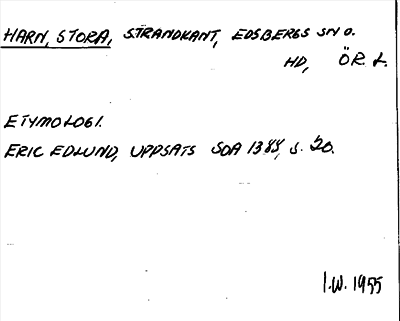 HARN, STORA, STRANDKANT, EDSBERGS SN O.
HD, ÖR. L.
ETYMOLOGI.
ERIC EDLUND, UPPSATS SOA 1388, S. 20.
I.W. 1955